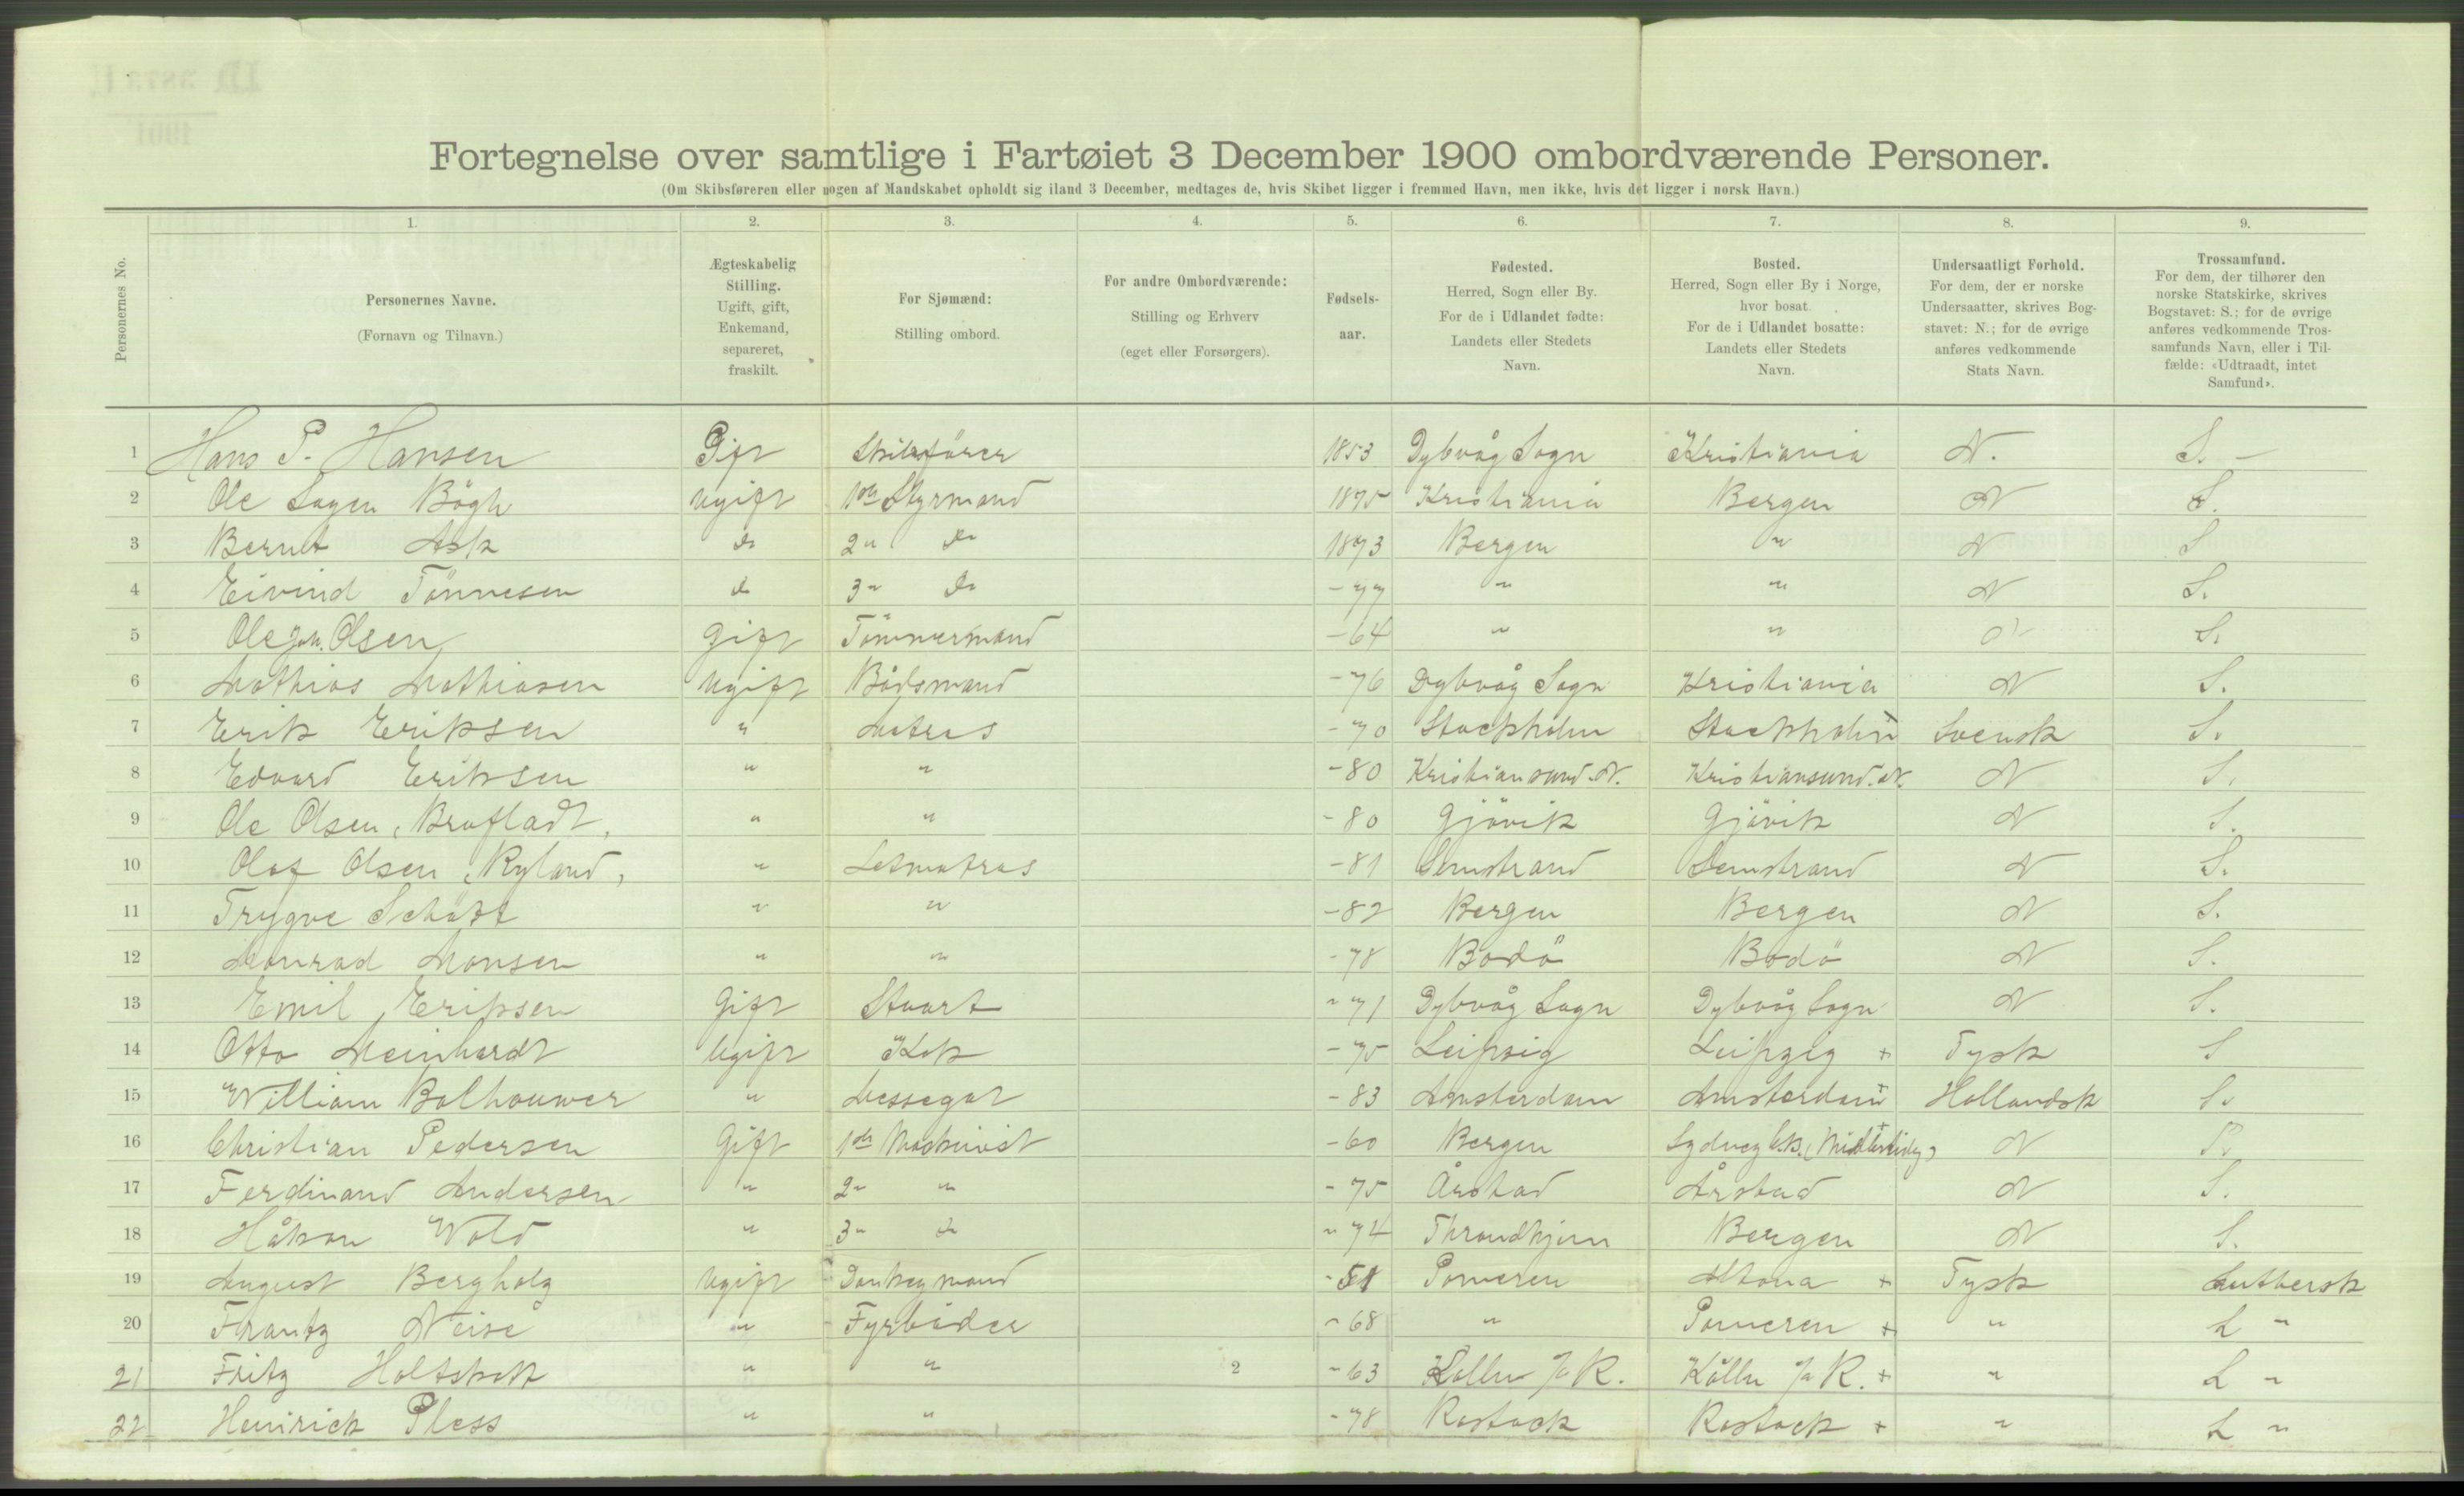 Fortegnelse over samtlige i Fartøiet 3 December 1900 ombordværende Personer.
(Om Skibsføreren eller nogen af Mandskabet opholdt sig iland 3 December, medtages de, hvis Skibet ligger i fremmed Havn, men ikke, hvis det ligger i norsk Havn.)
Personernes No.
1. Personernes Navne. (Fornavn og Tilnavn.)
2. Ægteskabelig Stilling. Ugift, gift, Enkemand, separeret, fraskilt.
3. For Sjømænd: Stilling ombord.
4. For andre Ombordværende: Stilling og Erhverv (eget eller Forsørgers).
5. Fødsels-aar.
6. Fødested. Herred, Sogn eller By. For de i Udlandet fødte: Landets eller Stedets Navn.
7. Bosted. Herred, Sogn eller By i Norge, hvor bosat. For de i Udlandet bosatte: Landets eller Stedets Navn.
8. Undersaatligt Forhold. For dem, der er norske Undersaatter, skrives Bog-stavet: N.; for de øvrige anføres vedkommende Stats Navn.
9. Trossamfund. For dem, der tilhører den norske Statskirke, skrives Bogstavet: S.; for de øvrige anføres vedkommende Tros-samfunds Navn, eller i Til-fælde: «Udtraadt, intet Samfund».
1 Hans P. Hansen Gift Skibsfører 1853 Dybvåg Sogn Kristiania N. S. –
2 Ole Sagen Bögh Ugift 1ste Styrmand 1875 Kristiania Bergen N S.
3 Bernt Ask do 2" do 1873 Bergen " N S
4 Eivind Tönnesen do 3" do -77 " " N S.
5 Ole Joh. Olsen Gift Tömmermand -64 " " N S.
6 Mathias Mathiasen Ugift Bådsmand -76 Dybvåg Sogn Kristiania N S.
7 Erik Eriksen " Matros -70 Stockholm Stockholm Svensk S.
8 Edvard Eriksen " " -80 Kristiansund.N. Kristiansund.N. N S.
9 Ole Olsen, Brufladt, " " -80 Gjövik Gjövik N S.
10 Olaf Olsen, Ryland, " Letmatros -81 Semstrand Semstrand N S.
11 Trygve Schött " " -82 Bergen Bergen N S.
12 Monrad Monsen " " -78 Bodö Bodö N S.
13 Emil Eriksen Gift Stuart "71 Dybvåg Sogn Dybvåg Sogn N S.
14 Otto Meinhardt Ugift Kok -75 Leipzig Leipzig + Tysk S
15 William Bolhouwer " Messegut -83 Amsterdam Amsterdam + Hollandsk S.
16 Christian Pedersen Gift 1ste Maskinist -60 Bergen Sydney C.B. (Midlertidig) N S.
17 Ferdinand Andersen " 2" " -75 Årstad Årstad N S.
18 Håkon Wold " 3" do "74 Throndhjem Bergen N S.
19 August Bergholz Ugift Donkeymand -51 Pomeren Altona + Tysk Luthersk
20 Frantz Neise " Fyrböder "68 " Pomeren + " L "
21 Fritz Holtskott " " 2 "63 Kölln /a R. Kölln /a R. + " L "
22 Heinrich Pless " " -78 Rostock Rostock + " L "